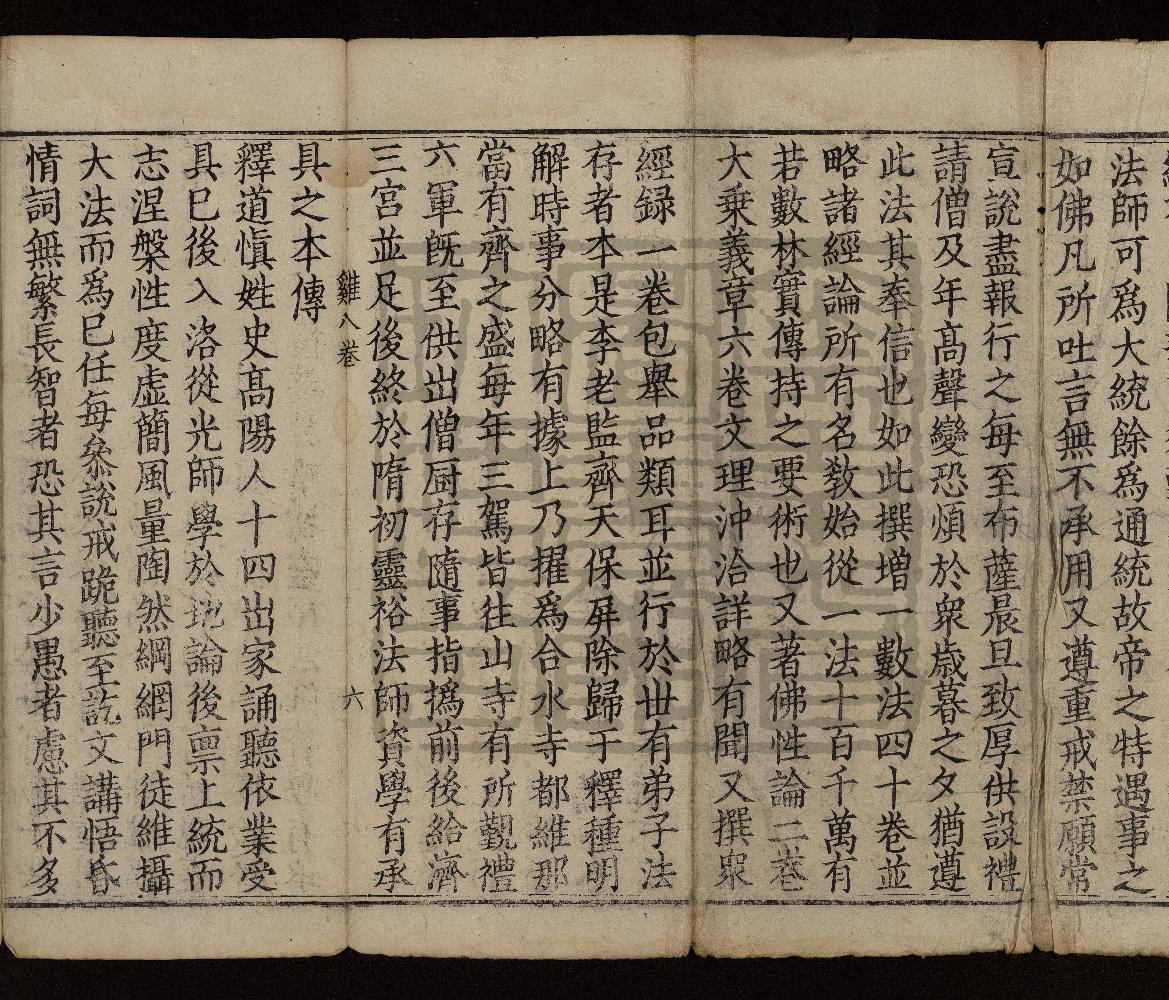 法師可爲大統餘爲通統故帝之特遇事之
如佛凡所吐言無不承用又遵重戒禁願常
宣說盡報行之每至布薩晨旦致厚供設禮
請僧及年髙聲變恐煩於衆歳暮之夕猶遵
此法其奉信也如此撰増一數法四十卷並
略諸經論所有名教始從一法十百千萬有
若數林實傳持之要術也又著佛性論二卷
大乗義章六卷文理沖洽詳略有聞又撰衆
經録一卷包舉品類耳並行於世有弟子法
存者本是李老監齊天保屏除歸于釋種明
解時事分略有據上乃擢爲合水寺都維那
當有齊之盛每年三駕皆往山寺有所覲禮
六軍旣至供出僧厨存隨事指撝前後給濟
三宮並足後終於隋初靈裕法師資學有承
雞八卷 六
具之本傳
釋道愼姓史髙陽人十四出家誦聽依業受
具巳後入洛從光師學於地論後禀上統而
志涅槃性度虚簡風量陶然綱網門徒維攝
大法而爲巳任每叅說戒跪聽至訖文講悟昏
情詞無繁長智者恐其言少愚者慮其不多